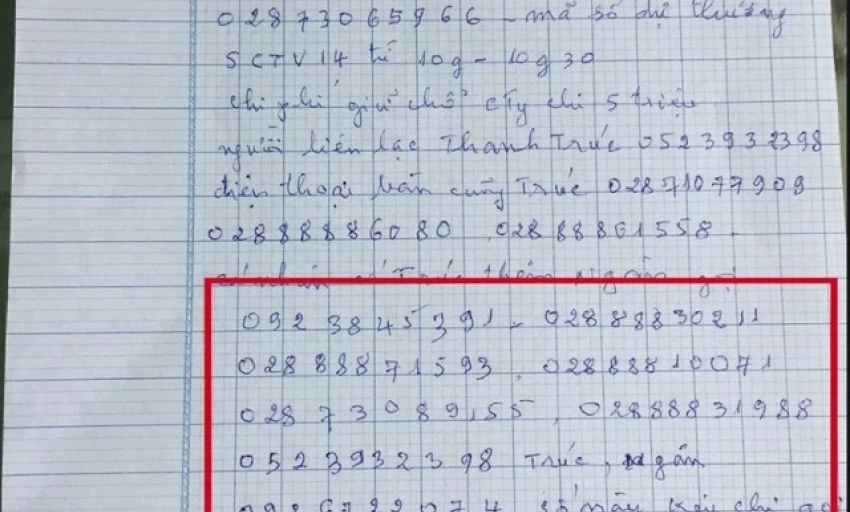 02873065966 - mã số dự thưởng
SCTV14 từ 10g - 10g30
chi phí giữ chỗ cty chi 5 triệu
người liên lạc Thanh Trúc 0523932398
điện thoại bàn cũng Trúc 02871077909
02888886080 . 02888861558.
Trúc
0923845391 - 02888830211
02888871593 . 02888810071
0287308955 , 02888831988
0523932398 Trúc, Ngân
số máy chị gọi